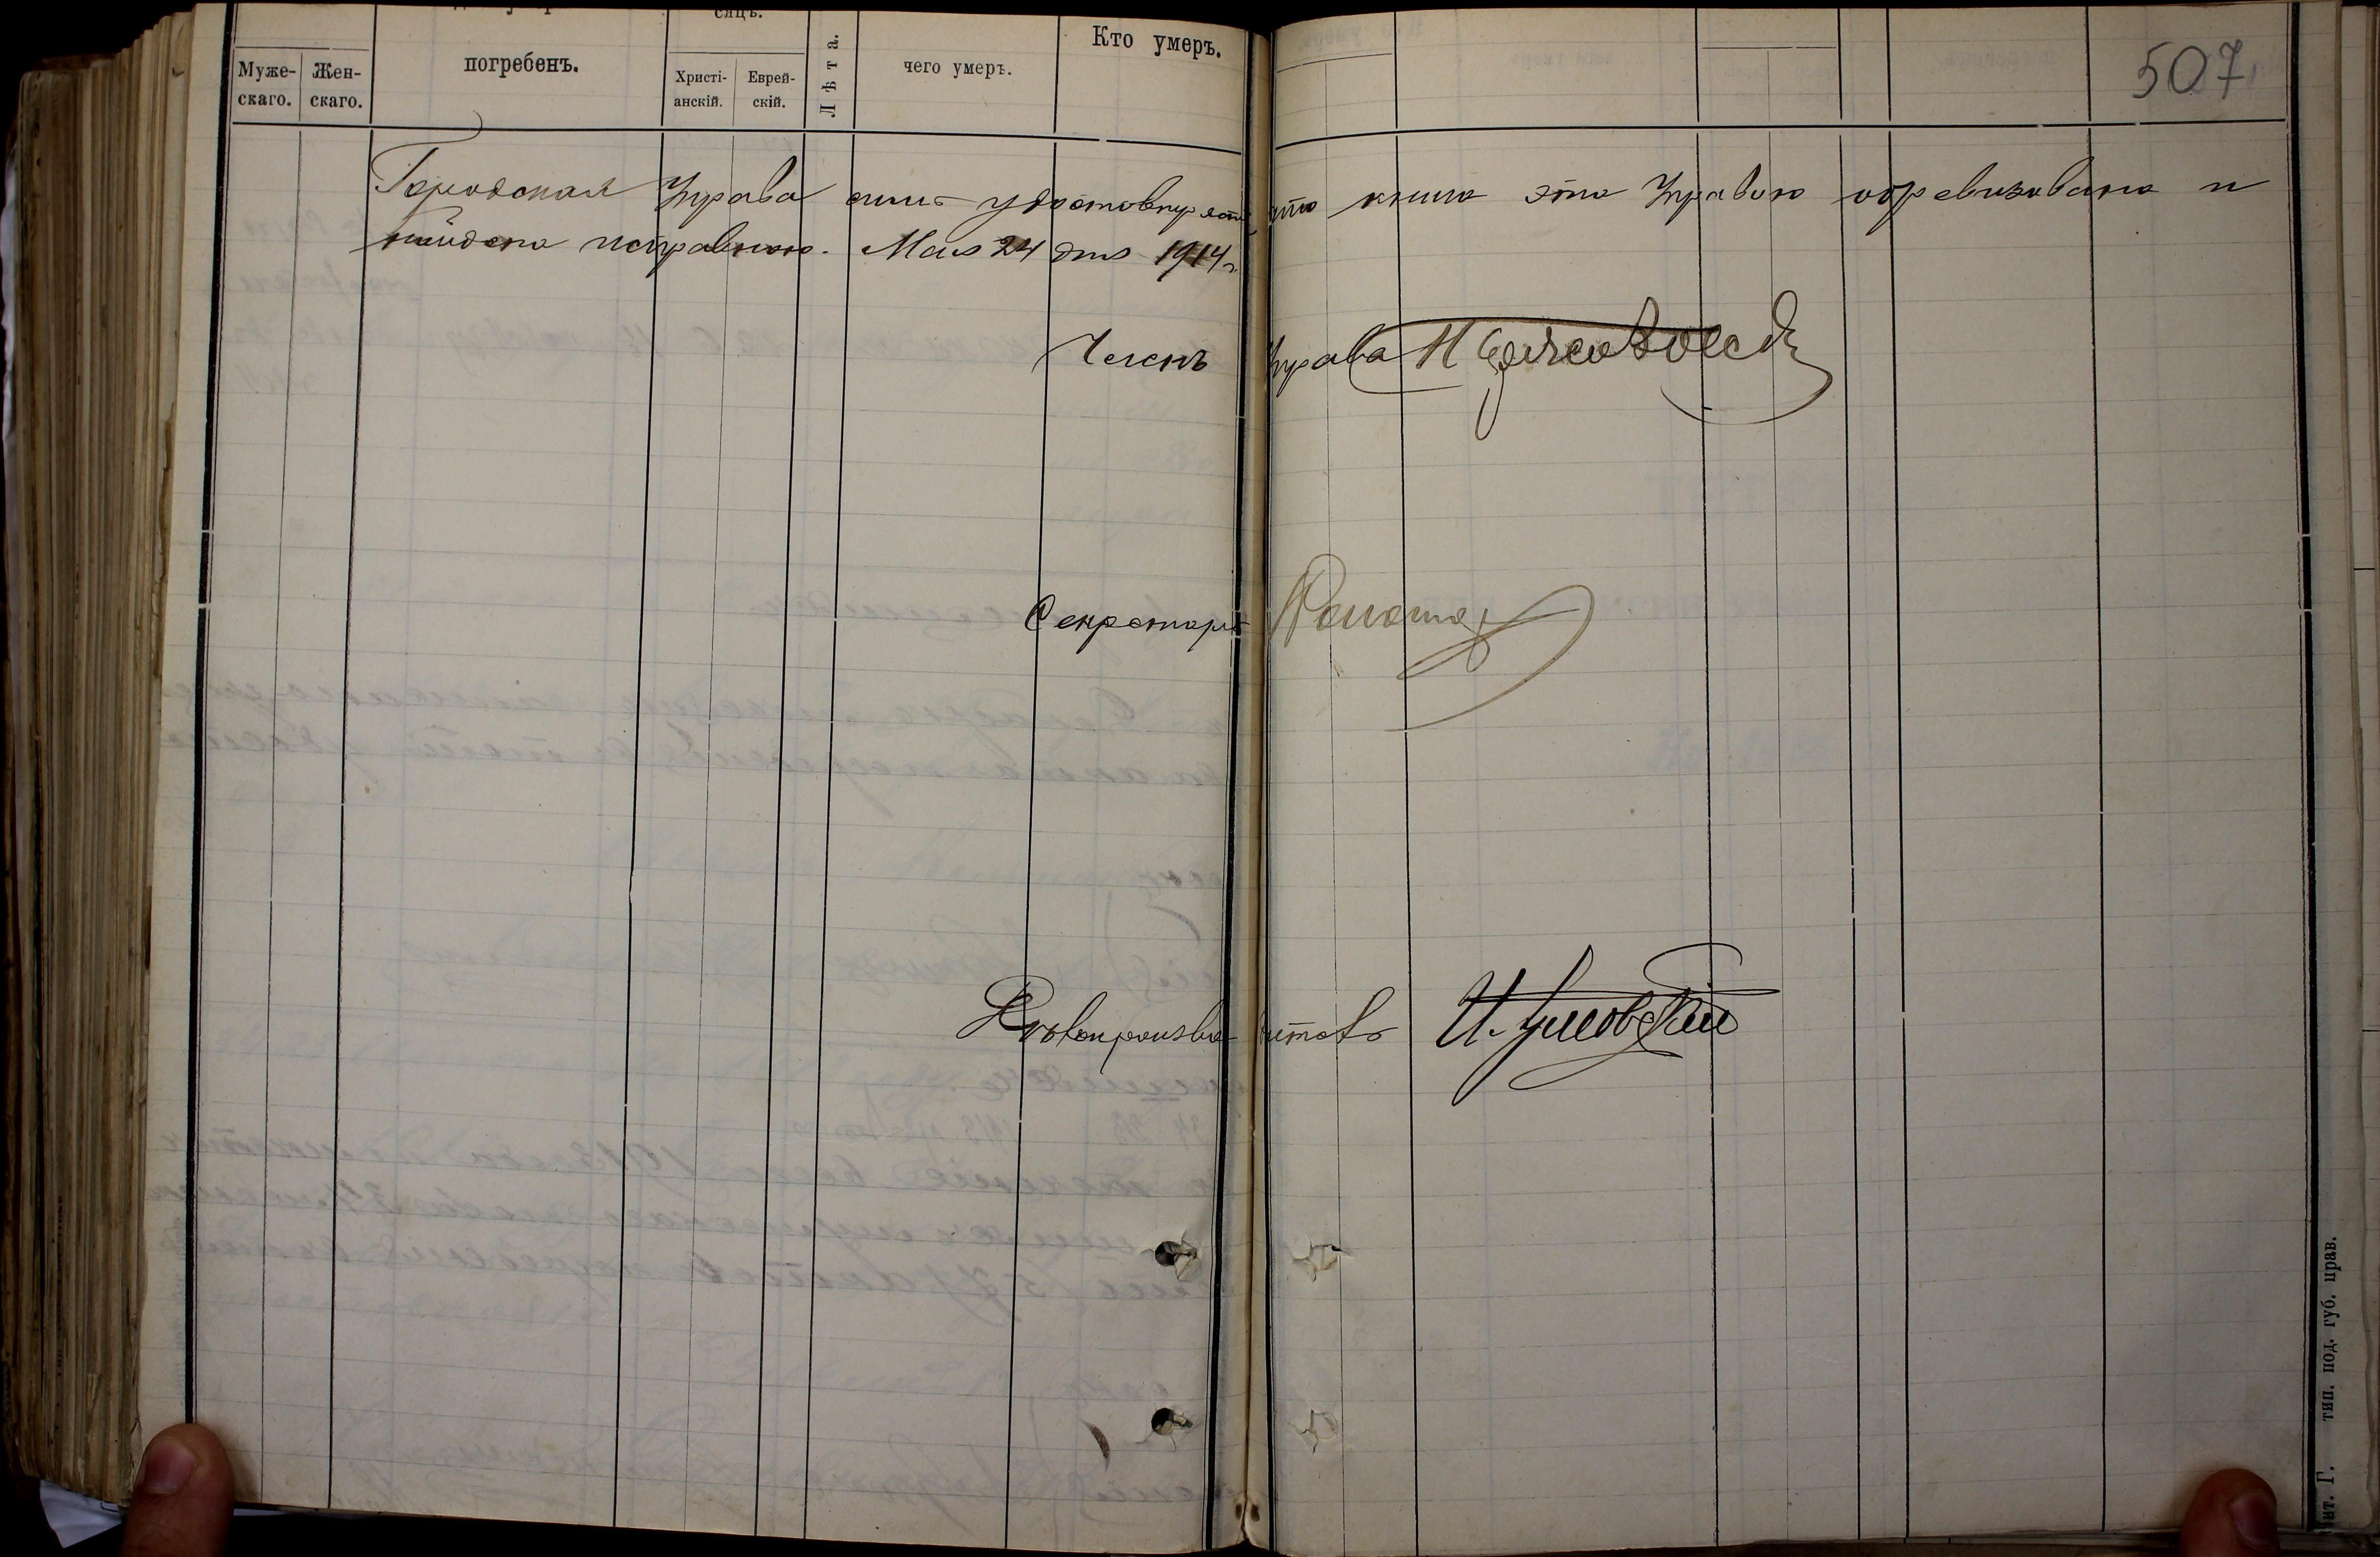 507
Муже-
скаго.
Жен-
скаго.
погребенъ.
сяцъ.
Христі-
анскій.
Еврей-
скій.
Лѣта.
чего умеръ.
Кто умеръ.
Городская Управа симъ удостовѣряетъ что книга эта Управою обревизована и
найдена исправною. Мая 24 дня 1914 г.
Членъ Управы Н
Секретарь
Дѣлопроизводитель И.
Лит. Г. тип. под. губ. прав.